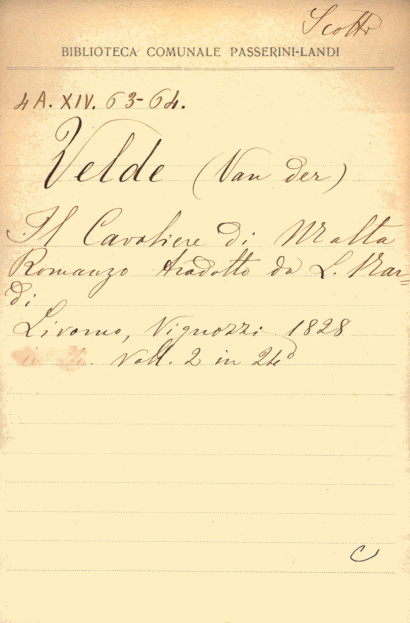 Scotti
BIBLIOTECA COMUNALE PASSERINI-LANDI
4A. XIV. 63-64.
Velde (Van der)
Il Cavaliere di Malta
Romanzo tradotto da L. Nar=
di
Livorno, Vignozzi 1828
Voll. 2 in 24º
C